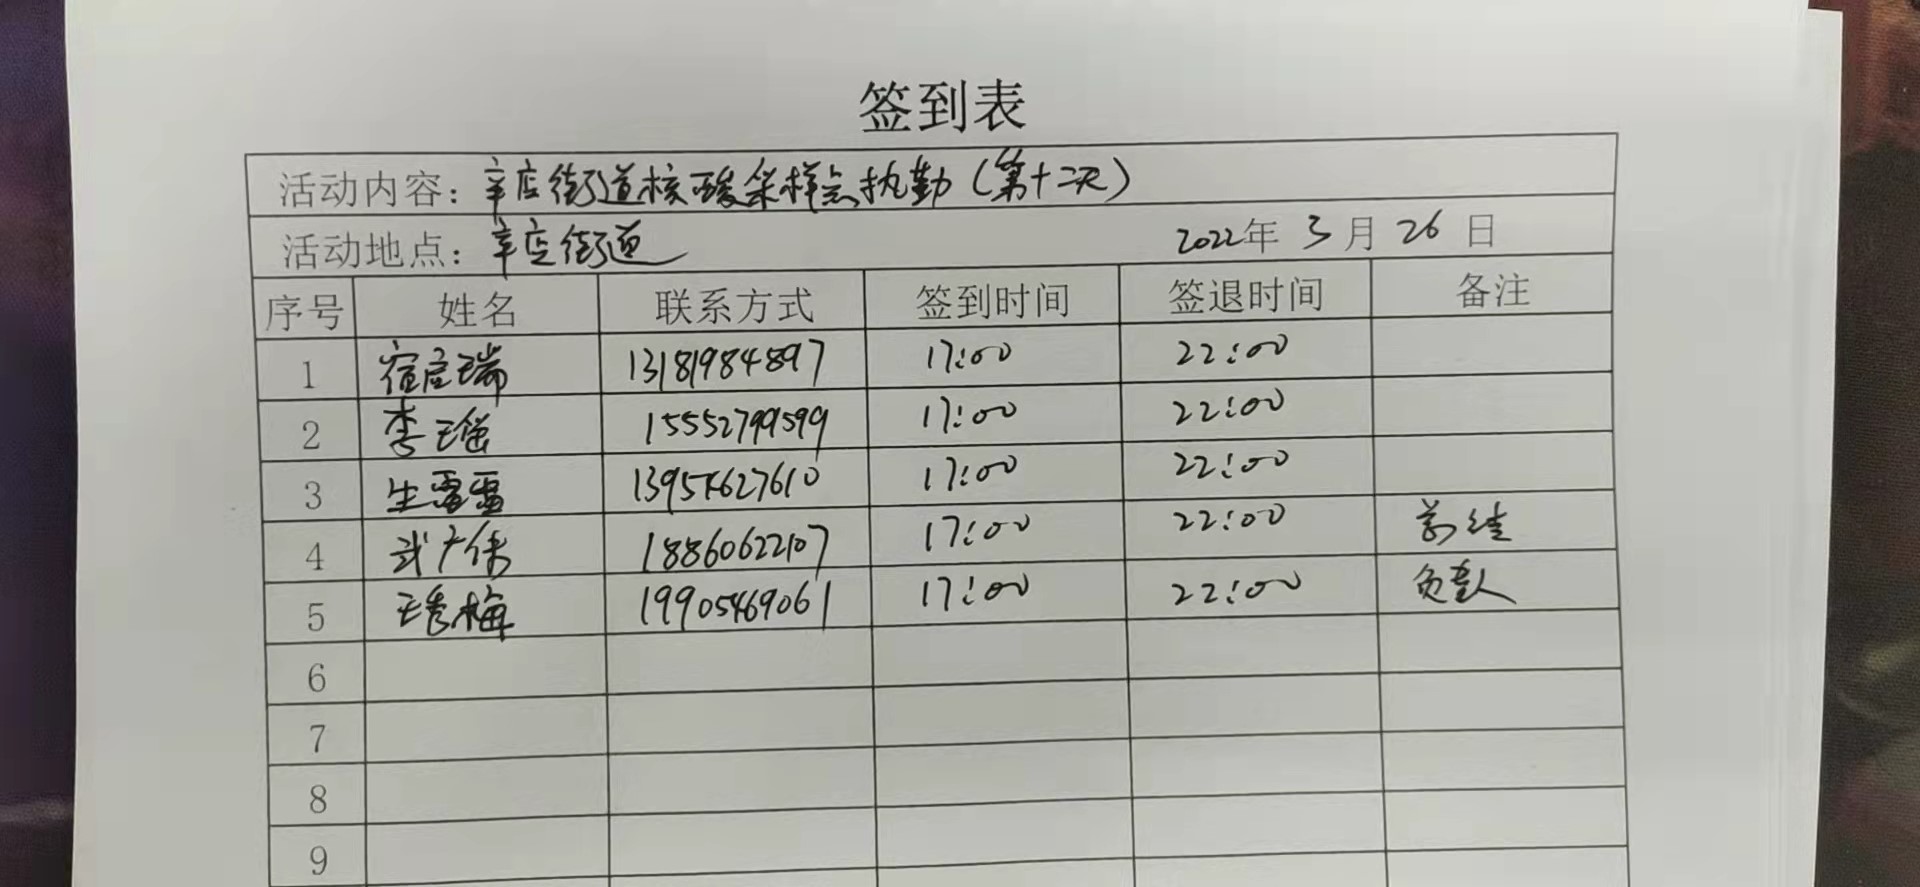 签到表
活动内容：辛店街道核酸采样点执勤（第十二次）
活动地点：辛店街道 2022年 3月 26日
序号 姓名 联系方式 签到时间 签退时间 备注
1 瑞 13181984897 17:00 22:00
2 李瑶 15552799599 17:00 22:00
3 生雷雷 13954627610 17:00 22:00
4 武广伟 18860622107 17:00 22:00
5 王秀梅 19905469061 17:00 22:00 负责人
6
7
8
9